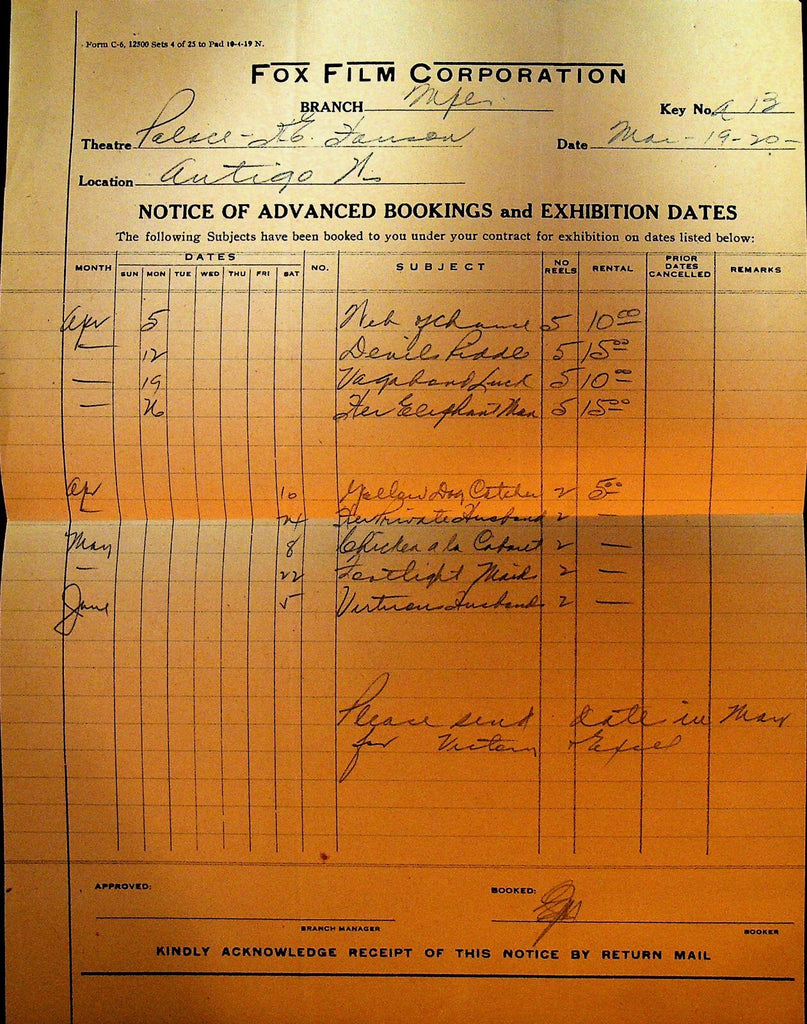 Form C-6, 12500 Sets 4 of 25 to Pad 10-4-19 N.
FOX FILM CORPORATION
BRANCH Mpls.
Key No. A 13
Theatre Palace - Hanson
Date Mar - 19 - 20 -
Location Antigo
NOTICE OF ADVANCED BOOKINGS and EXHIBITION DATES
The following Subjects have been booked to you under your contract for exhibition on dates listed below:
MONTH DATES NO. SUBJECT NO REELS RENTAL PRIOR DATES CANCELLED REMARKS
SUN MON TUE WED THU FRI SAT
Apr 5 Web of Chance 5 10 00
— 12 Devils Riddle 5 15 00
— 19 Vagabond Luck 5 10 00
— 26 Her Elephant Man 5 15 00
Apr 10 Yellow Dog Catcher 2 5 00
24 Her Private Husband 2 —
May 8 Chicken a la Cabaret 2 —
— 22 Footlight Maids 2 —
June 5 Virtuous Husbands 2 —
Please send date in May
for Victory Excel
APPROVED:
BOOKED:
BRANCH MANAGER
BOOKER
KINDLY ACKNOWLEDGE RECEIPT OF THIS NOTICE BY RETURN MAIL